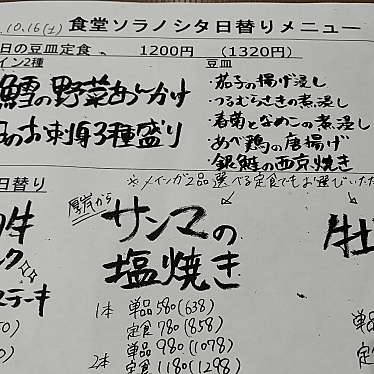 10.16(土) 食堂ソラノシタ日替りメニュー
日の豆皿定食 1200円 (1320円)
イン2種
鱈の野菜あんかけ
のお刺身3種盛り
豆皿
・茄子の揚げ浸し
・つるむらさきの煮浸し
・春菊となめこの煮浸し
・あべ鶏の唐揚げ
・銀鮭の西京焼き
日替り
※メインが2品選べる定食でもお選びいただ
牛
ック
ステーキ
厚岸から
サンマの
塩焼き
1本 単品580(638)
定食780(858)
2本 単品980(1078)
定食1180(1298)
牡
単品
定食